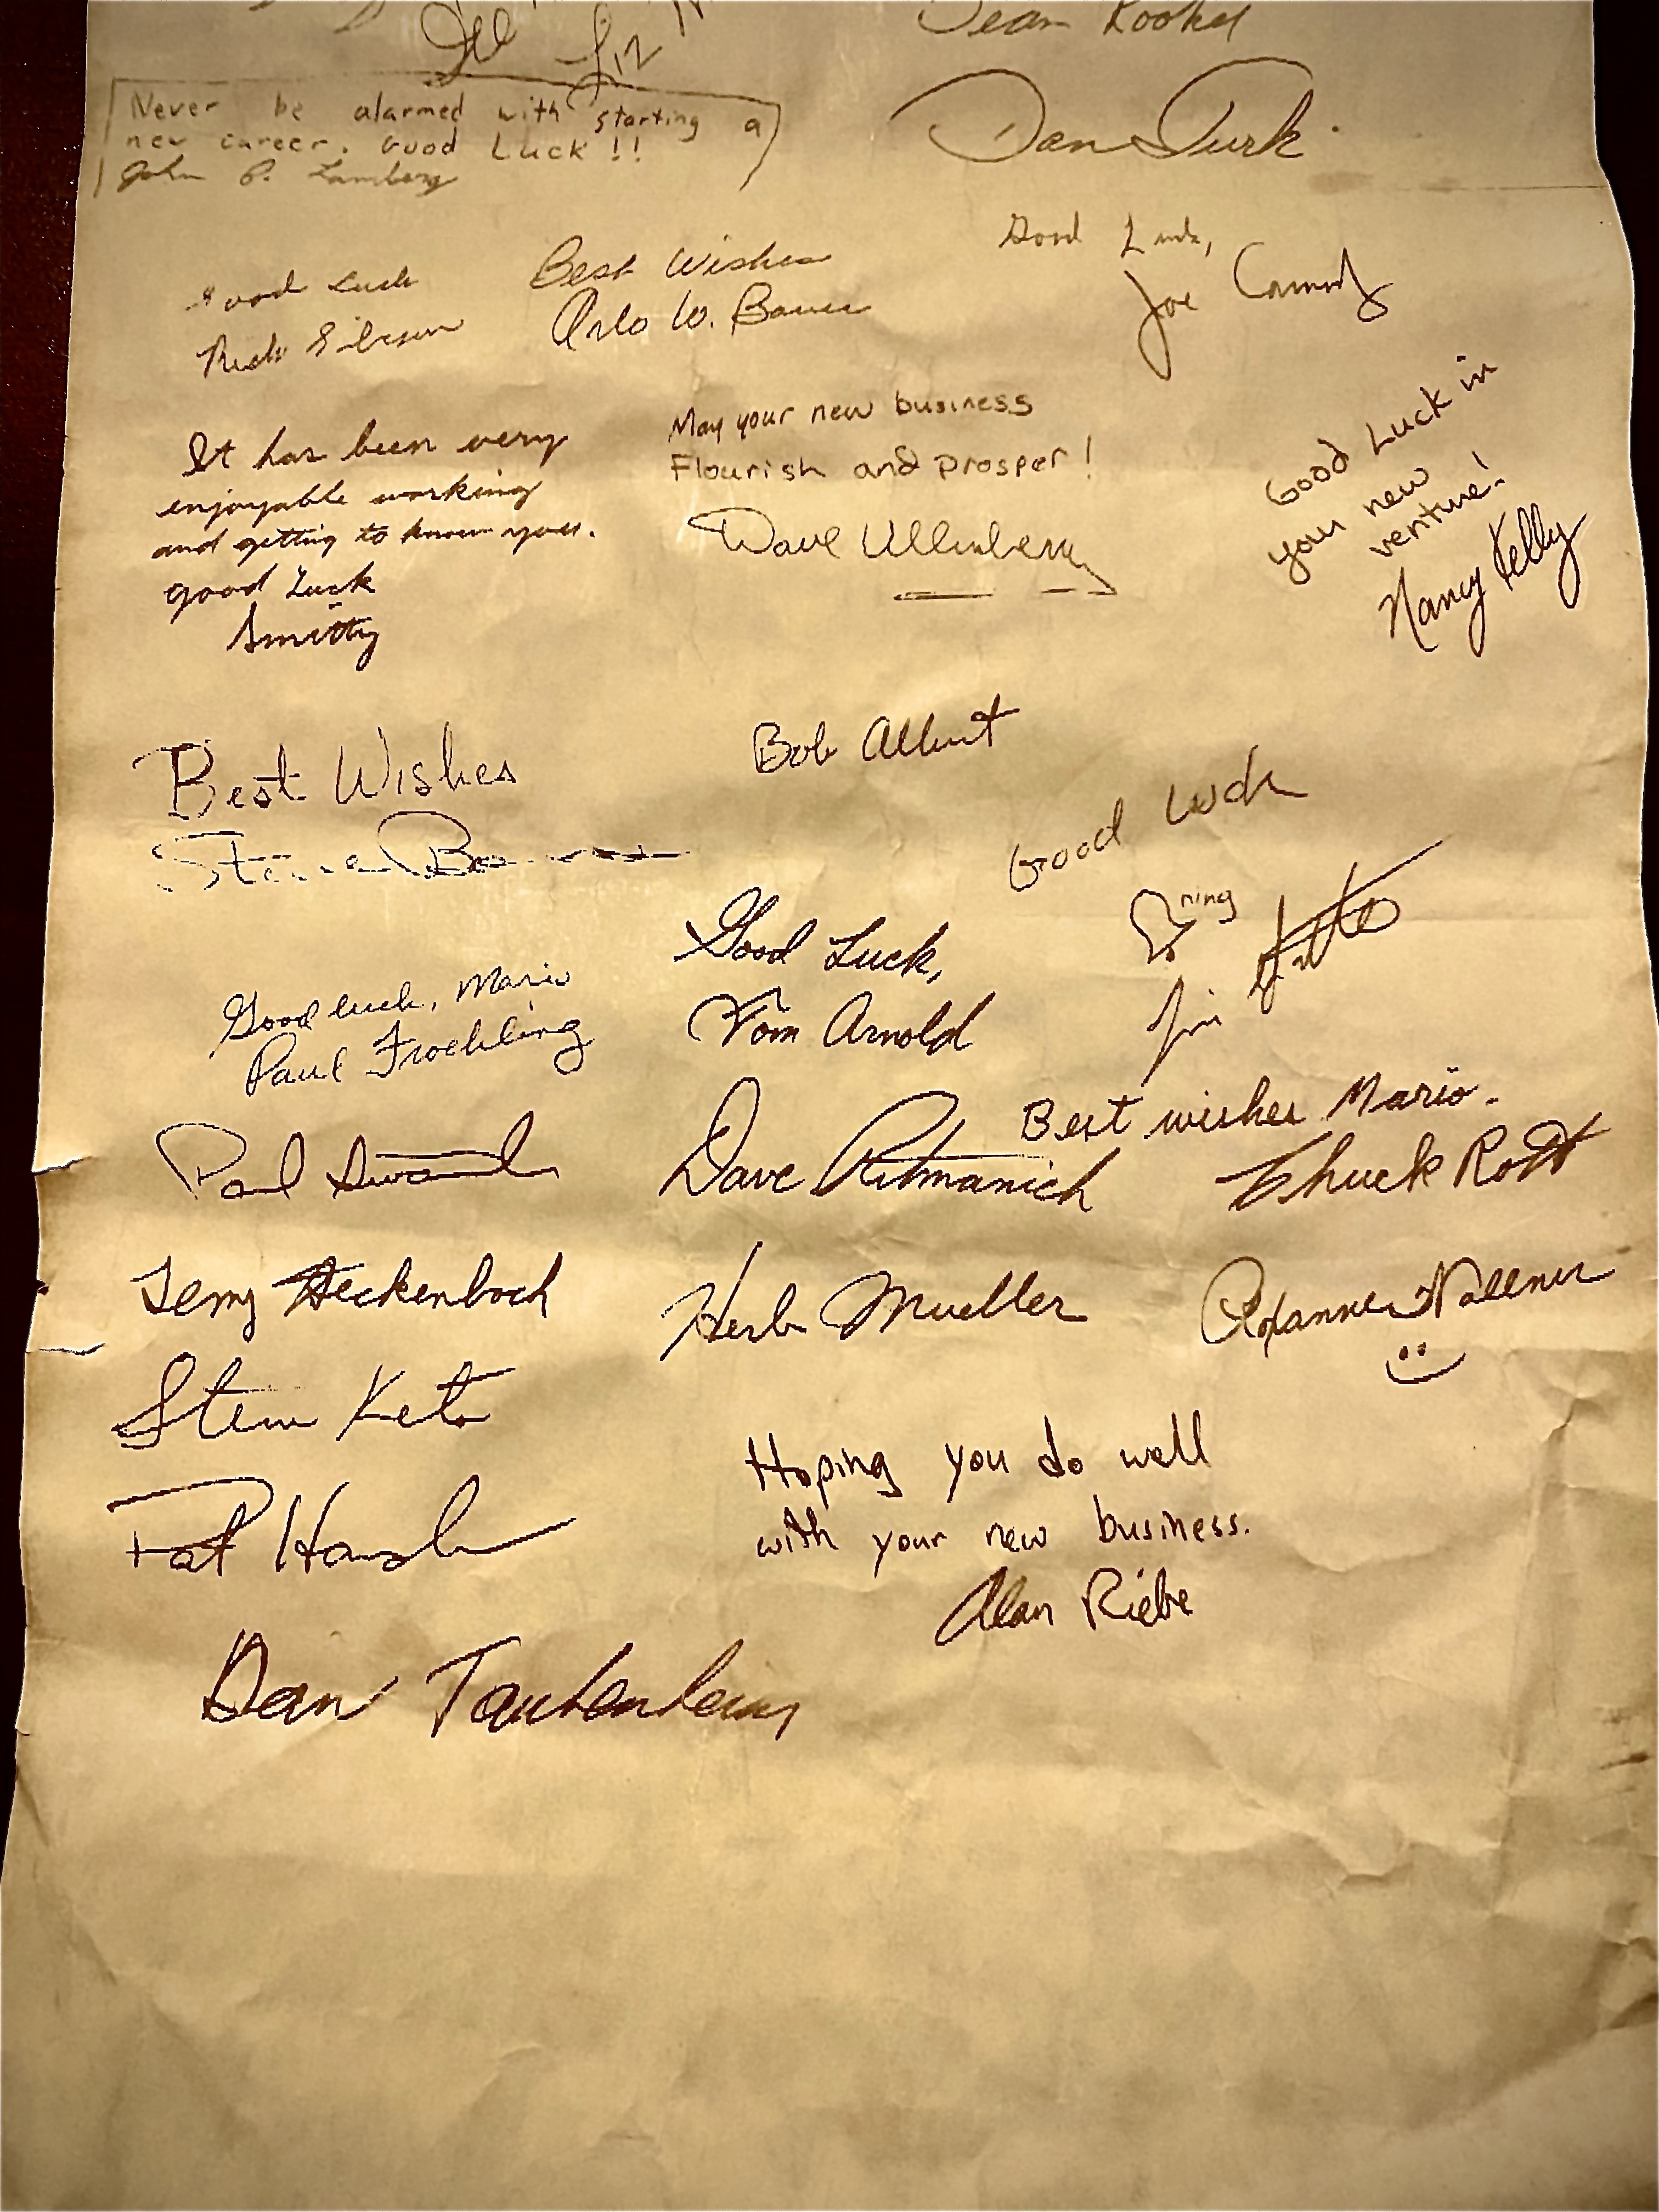 Dan Turk
Never be alarmed with starting a
new career. Good Luck!!
John P.
Good Luck,
Joe
Best Wishes
Orlo W. Bauer
Good Luck
Rick Gibson
May your new business
Flourish and prosper!
Dave Ullenberg
Good Luck in
your new
venture!
Nancy Kelly
It has been very
enjoyable working
and getting to know you.
good Luck
Smitty
Bob Albert
Best Wishes
Steve
Good Luck
ning
Jim
Good Luck,
Tom Arnold
Good luck, Mario
Paul Froehling
Best wishes Mario.
Chuck Rott
Paul
Dave Ritmanich
Terry Heckenbach
Herb Mueller
Roxanne Wallner
Steve Keto
Hoping you do well
with your new business.
Alan Riebe
Pat
Dan Taubenheim